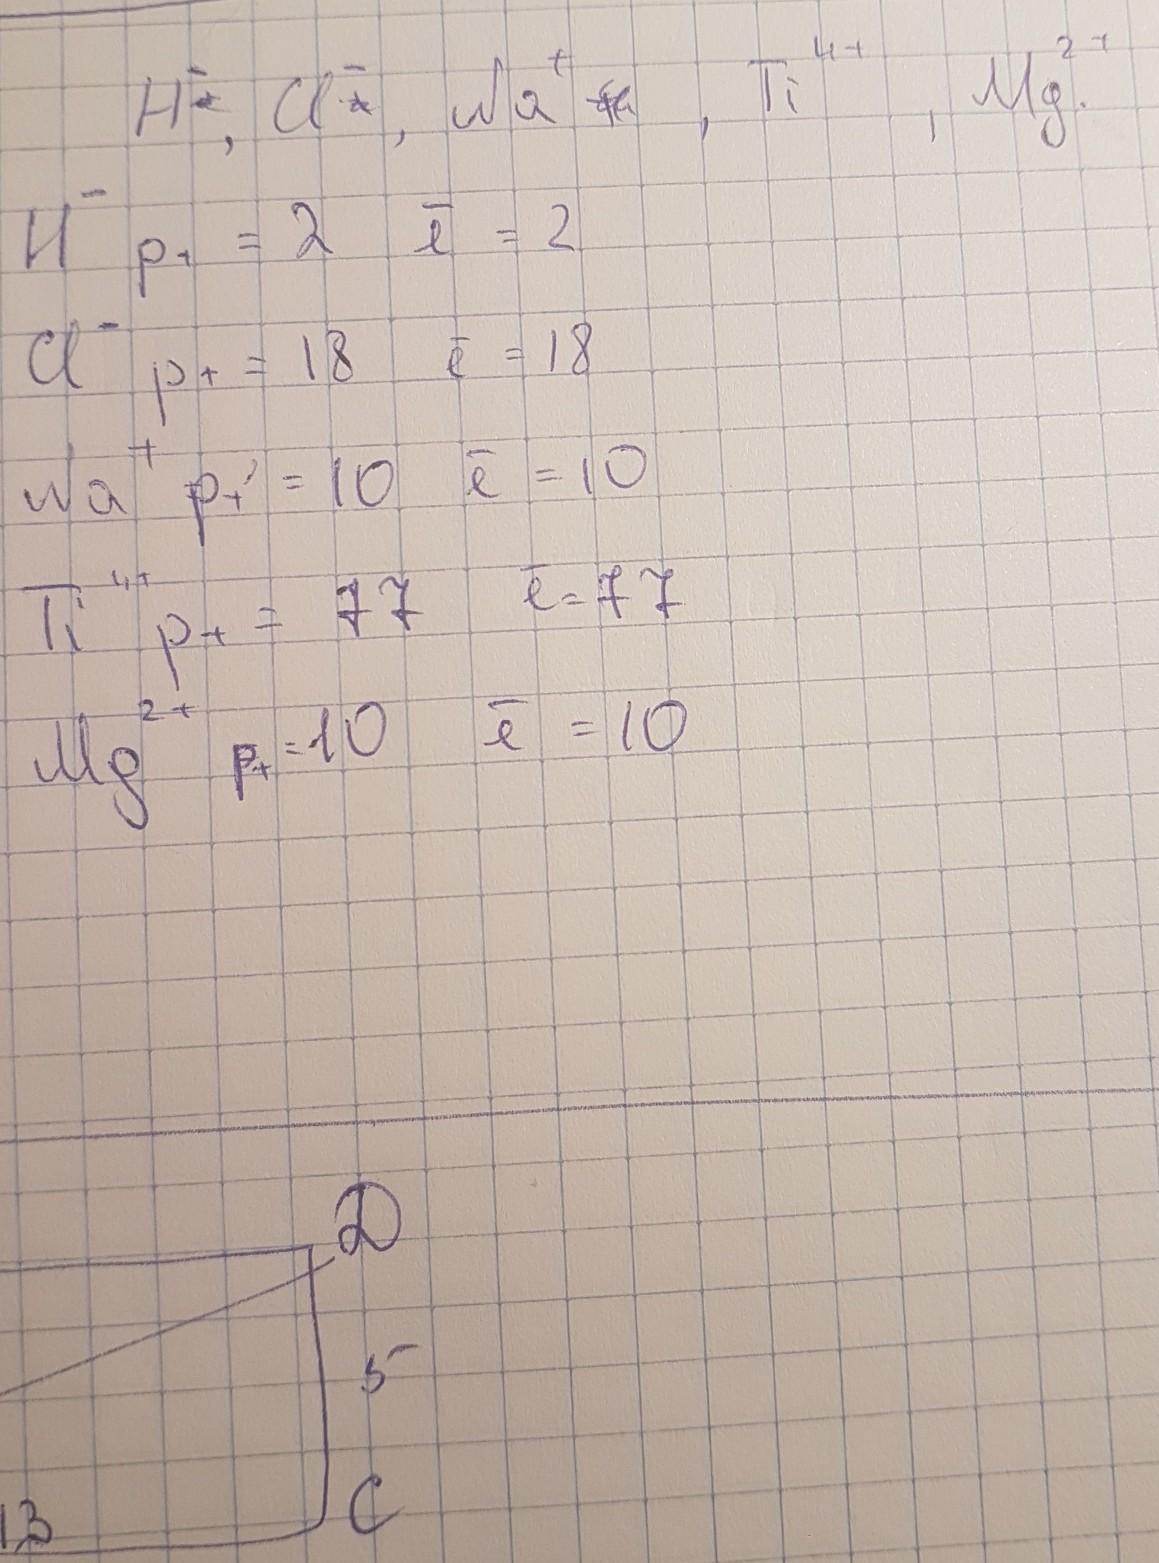 H⁻, Cl⁻, Na⁺, Ti⁴⁺, Mg²⁺.
H⁻ p+ = 2 ē = 2
Cl⁻ p+ = 18 ē = 18
Na⁺ p+ = 10 ē = 10
Ti⁴⁺ p+ = 77 ē = 77
Mg²⁺ p+ = 10 ē = 10
D
5
C
13